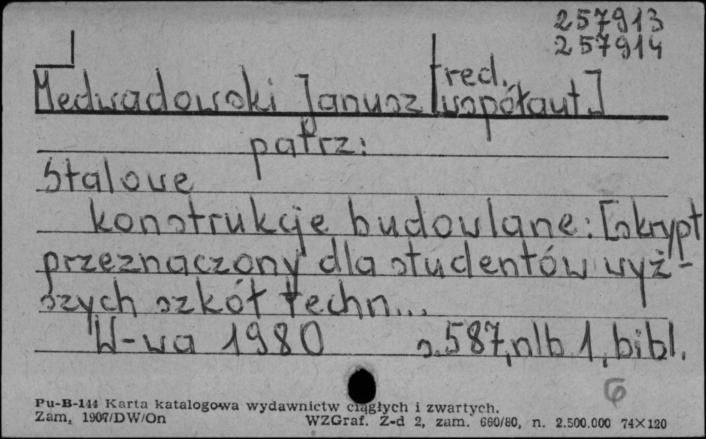 257913
257914
Medwadowski Janusz [red.
współaut.]
patrz:
Stalowe
konstrukcje budowlane: [skrypt
przeznaczony dla studentów wyż-
szych szkół techn...
W-wa 1980 s.587, nlb 1, bibl.
6
Pu-B-144 Karta katalogowa wydawnictw ciągłych i zwartych.
Zam. 1907/DW/On WZGraf. Z-d 2, zam. 660/80, n. 2.500.000 74×120